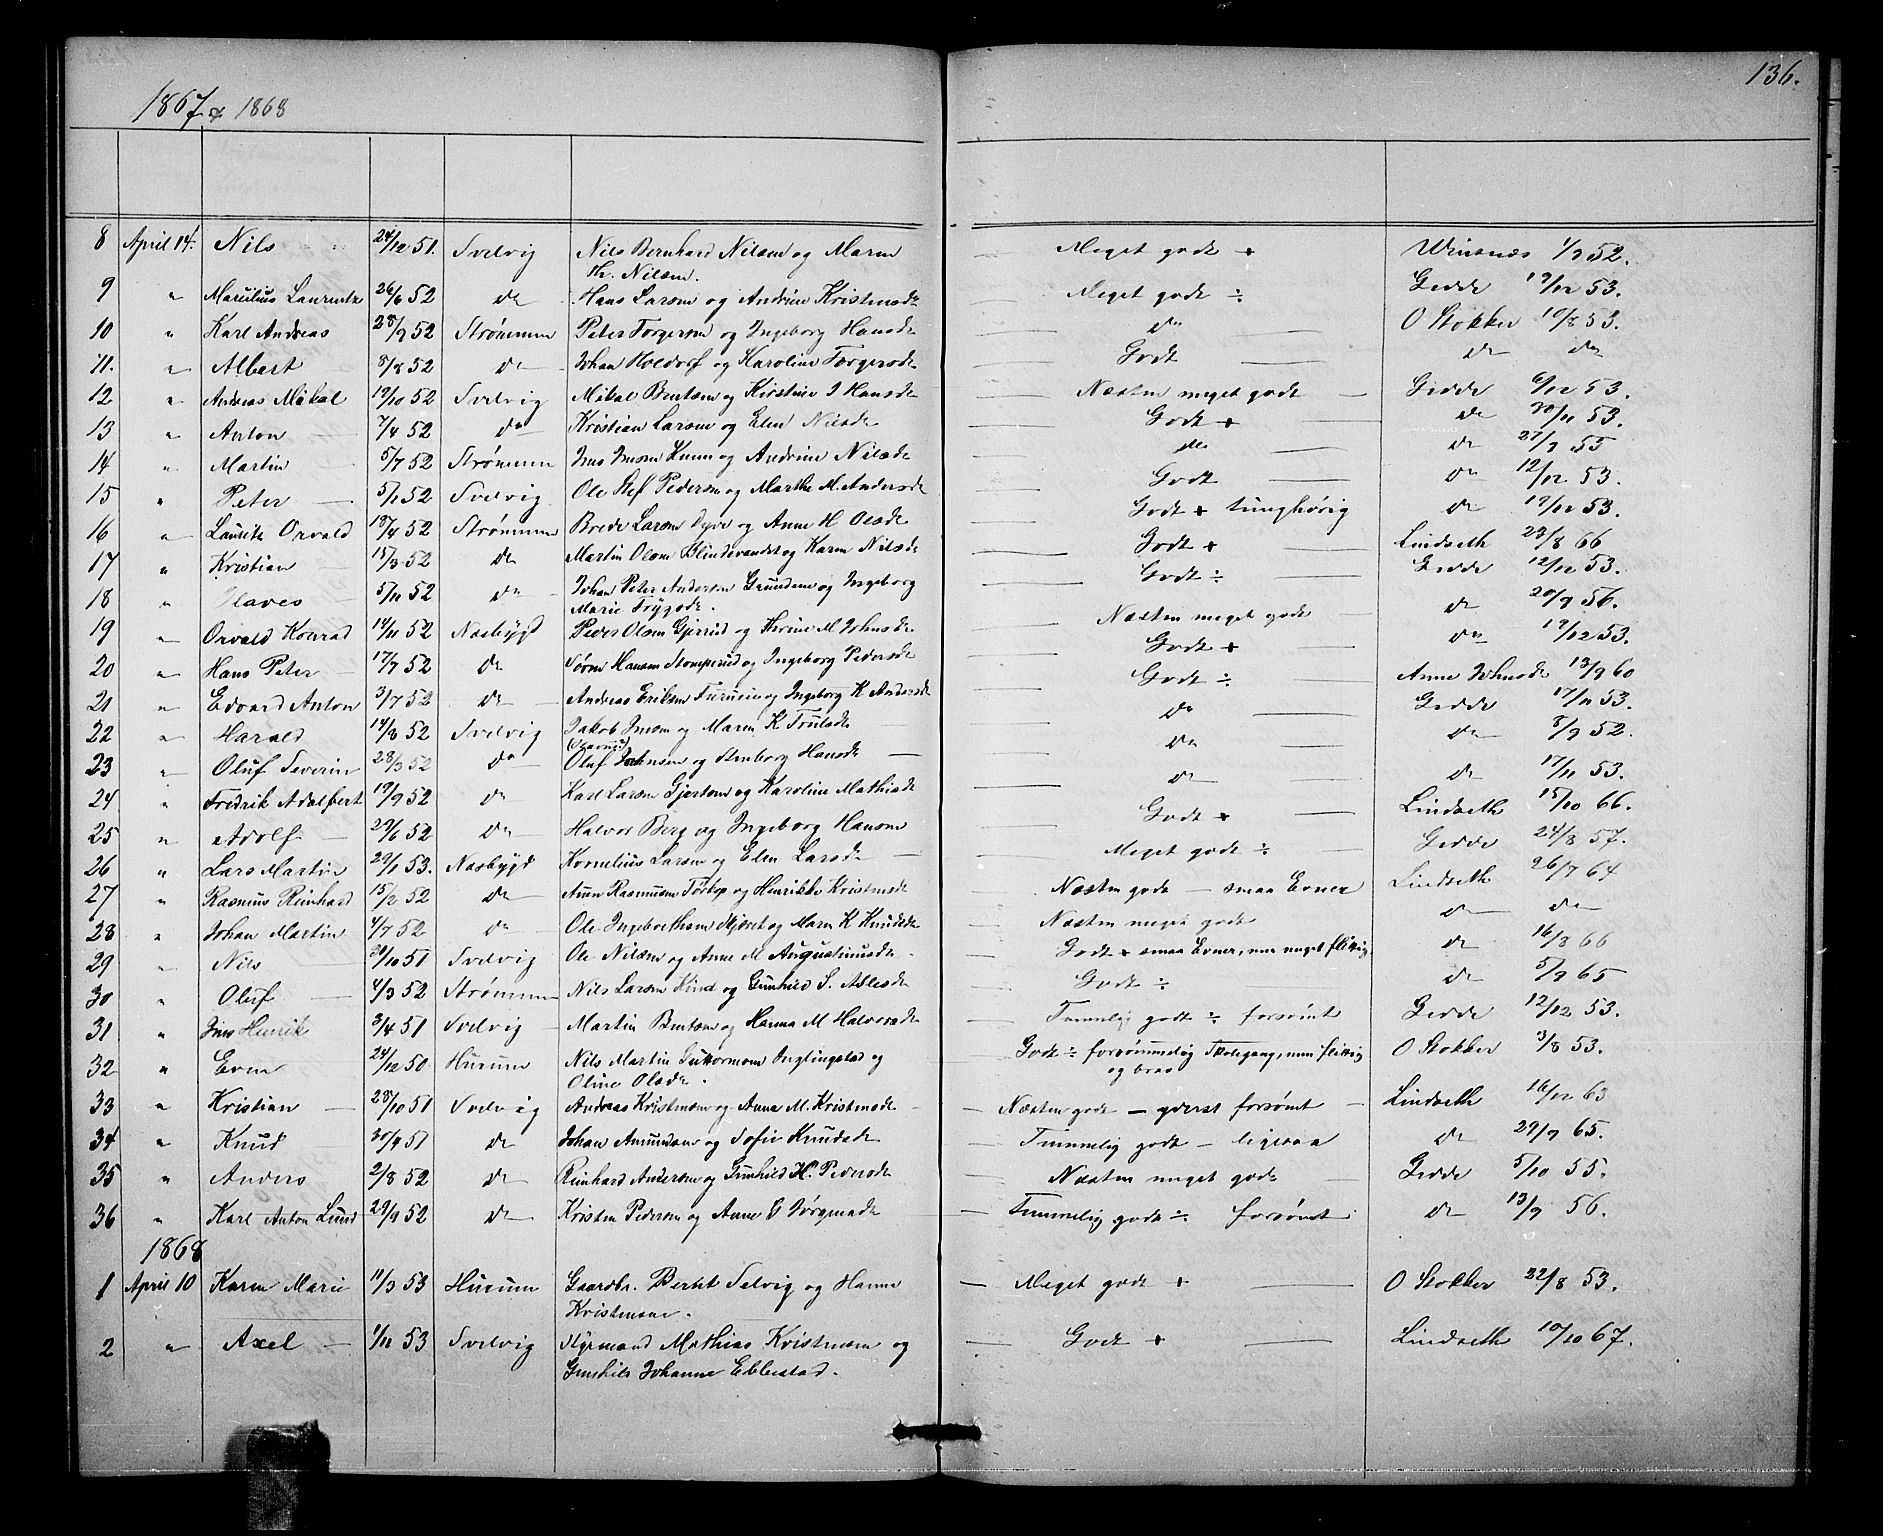 136.
1867 & 1868
8 April 14. Nils 24/12 51. Svelvig Nils Bernhard Nilsen og Maren Meget godt + Winsnes 1/3 52.
Kr. Nilsen.
9 " Marulius Laurentz 26/6 52 do Hans Larsen og Andrine Kristensdr Meget godt ÷ Gedde 19/12 53.
10 " Karl Andreas 28/9 52 Strømmen Peter Torgersen og Ingeborg Hansdr do O Stokker 19/8 53.
11. " Albert 8/8 52 do Johan Holdorf og Karoline Torgersdr Godt do do
12 " Andreas Mikal 19/10 52 Svelvig Mikal Berntsen og Kirstine J Hansdr Næsten meget godt Gedde 6/12 53.
13 " Anton 7/4 52 do Kristian Larsen og Elen Nilsdr Godt + do 30/11 53.
14 " Martin 5/7 52 Strømmen Jens Jensen og Andrine Nilsdr do do 27/9 55
15 " Peter 5/1 52 Svelvig Ole Stef Pedersen og Marthe M. Andersdr Godt do 12/12 53.
16 " Lauritz Orvald 18/4 52 Strømmen Brede Larsen Dyve og Anne H Olsdr Godt + tunghørig do 19/12 53.
17 " Kristian 15/3 52 do Martin Olsen Blindevandet og Karen Nilsdr Godt + Lindseth 28/8 66
18 " Olaves 5/11 52 do Johan Peter Andersen Grundene og Ingeborg Godt ÷ Gedde 12/12 53.
Marie Trygsdr.
19 " Orvald Konrad 14/11 52 Nesbygd Peder Olsen Gjerrud og Thrine M Johnsdr Næsten meget godt do 20/9 56.
20 " Hans Peter 17/7 52 do Søren Hansen Stomperud og Ingeborg Pedersdr Godt + do 19/12 53.
21 " Edvard Anton 3/7 52 do Andreas Eriksen og Ingeborg K Andersdr Godt ÷ Anne Johnsdr 13/9 60
22 " Harald 14/8 52 Svelvig Jakob Jensen og Maren K Trulsdr do Gedde 17/11 53.
23 " Oluf Severin 28/3 52 do Oluf Johnsen og Henborg Hansdr do do 8/9 52.
24 " Fredrik Adalbert 19/9 52 do Karl Larsen Gjertsen og Karoline Mathisdr do do 17/11 53.
25 " Adolf 29/6 52 do Halvor Berg og Ingeborg Hansen Godt + Lindseth 15/10 66.
26 " Lars Martin 29/1 53. Nesbygd Kornelius Larsen og Elen Larsdr Meget godt ÷ Gedde 24/8 57.
27 " Rasmus Reinhard 15/2 52 do Aun Rasmusen Tørkop og Henrikke Kristensdr Næsten godt – smaa Evner Lindseth 26/7 64
28 " Johan Martin 4/7 52 do Ole Ingebrethsen Skjøret og Maren K Knudsdr Næsten meget godt do do
29 " Nils 30/10 51 Svelvig Ole Nilsen og Anne M Augustinusdr Godt + smaa Evner, men meget flittig do 16/8 66
30 " Oluf 4/3 52 Strømmen Nils Larsen Kind og Gunhild S. Atlesdr Godt ÷ do 5/9 65
31 " Jens Henrik 3/4 51 Svelvig Martin Berntsen og Hanna M Halvorsdr Temmelig godt ÷ forsømt Gedde 12/12 53.
32 " Even 24/12 50 Hurum Nils Martin Guttormsen Inglingstad og Godt ÷ forsømmelig Skolegang, men flittig O Stokker 3/8 53.
Oline Olsdr. og brav
33 " Kristian 28/10 51 Svelvig Andreas Kristensen og Anne M. Kristensdr Næsten godt – yderst forsømt Lindseth 16/12 63
34 " Knud 30/4 51 do Johan Amundsen og Sofie Knudsdr Temmelig godt – ligesaa do 29/9 65.
35 " Anders 2/8 52 do Reinhard Andersen og Gunhild H. Pedersdr Næsten meget godt Gedde 5/10 55.
36 " Karl Anton Lund 29/9 52 do Kristen Pedersen og Anne G Jørgensdr Temmelig godt ÷ forsømt do 13/9 56.
1868
1 April 10 Karen Marie 11/3 53 Hurum Gaardbr. Bertel Selvig og Hanne Meget godt + O Stokker 22/8 53.
Kristensen.
2 " Axel 1/11 53 Svelvig Styrmand Mathias Kristensen og Godt + Lindseth 10/10 67.
Gunhild Johanne Ebbestad.